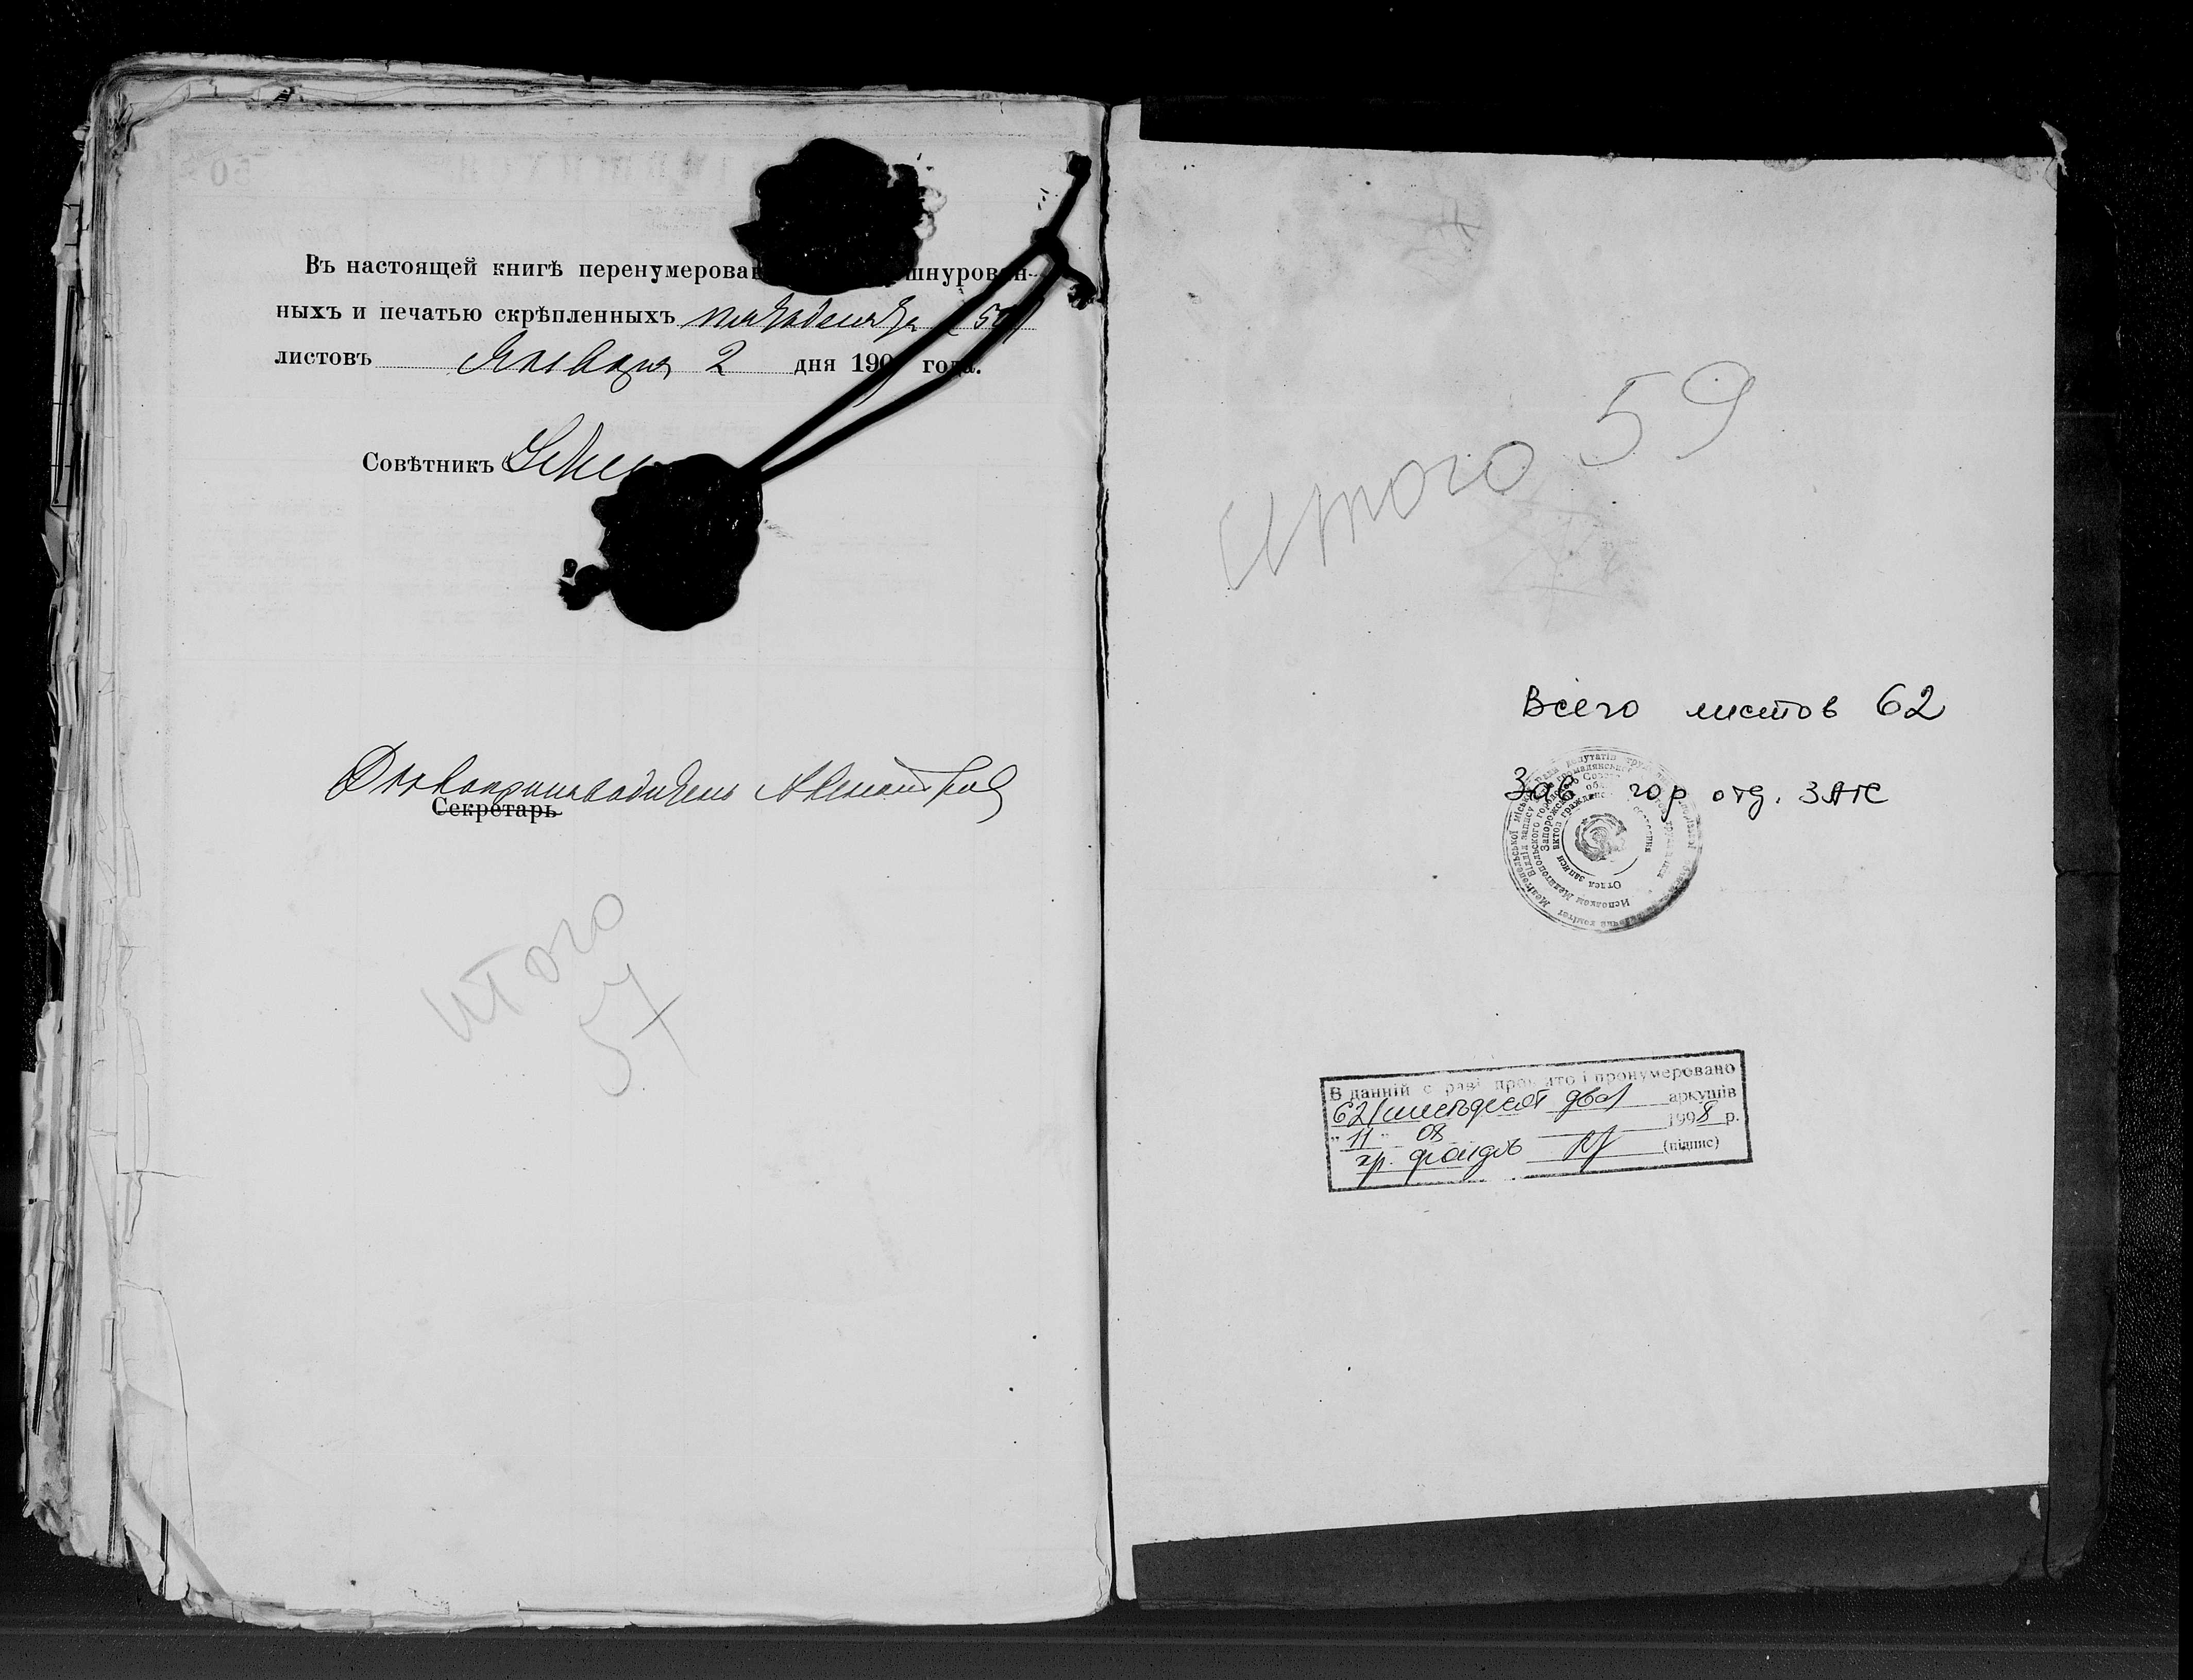 Въ настоящей книгѣ перенумерован шнурован-
ныхъ и печатью скрѣпленныхъ пятьдесятъ (50)
листовъ Января 2 дня 190 года.
Совѣтникъ
Дѣлопроизводитель
Секретарь
итого
57
Итого 59
Всего листов 62
Зав гор отд. ЗАГС
В данній с раві про ито і пронумеровано
62/шестьдесят два/ аркушів
" 11 " 08 1998 р.
(підпис)